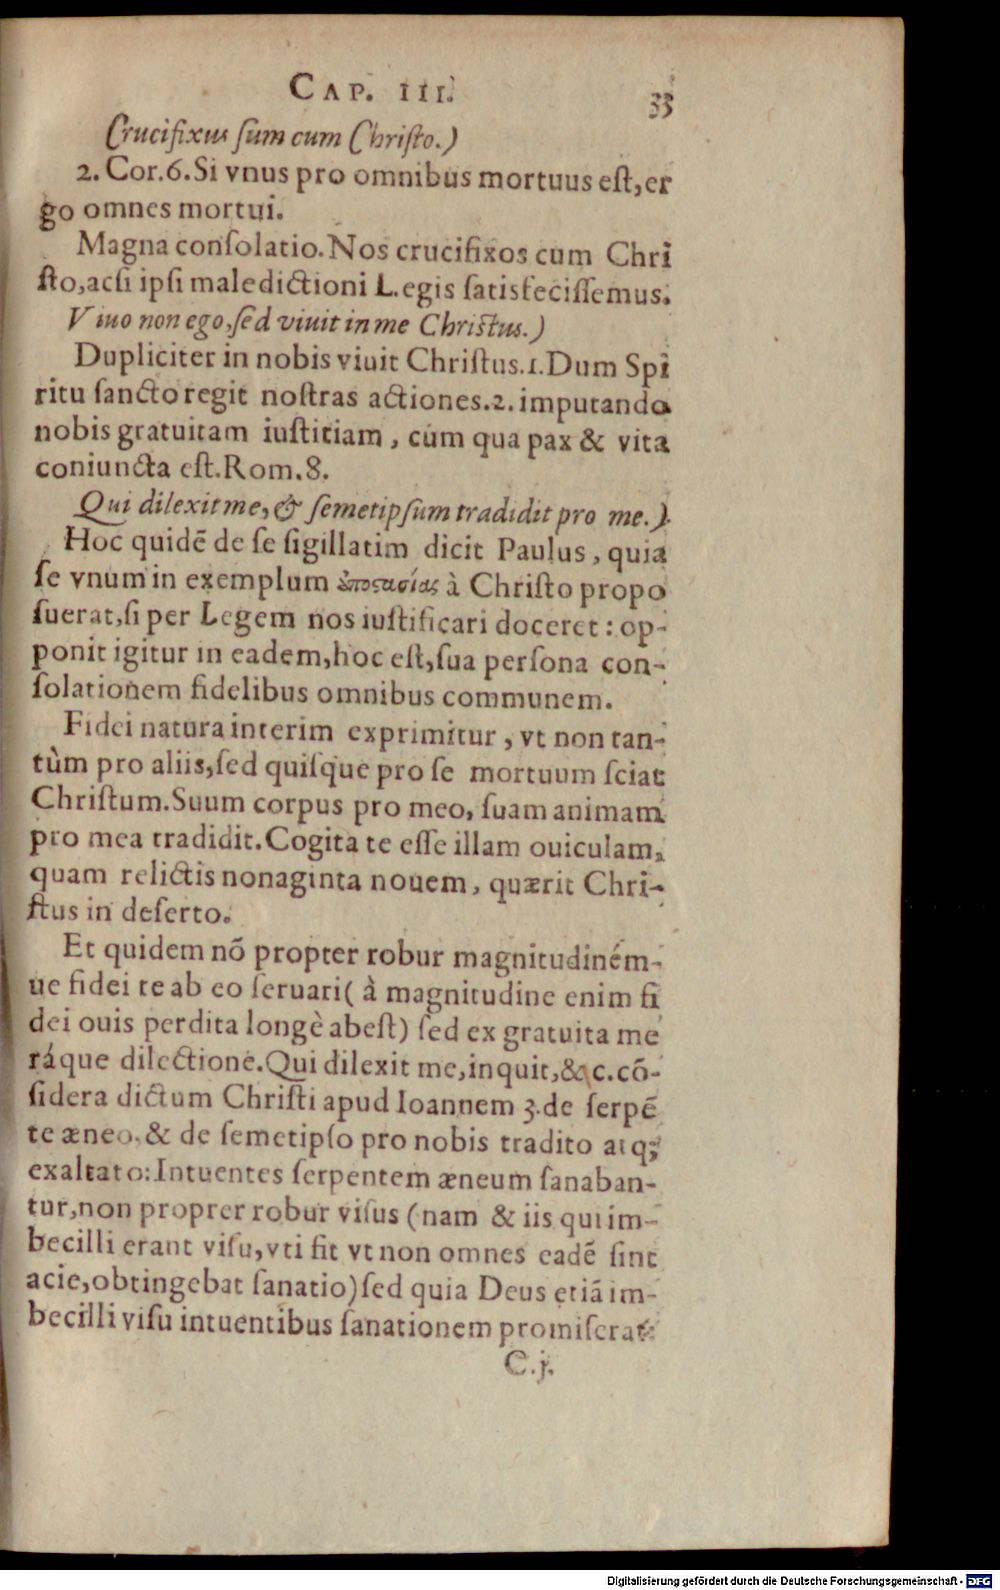 CAP. III.
33
Crucifixus ſum cum Chriſto.)
2. Cor.6. Si vnus pro omnibus mortuus eſt, er
go omnes mortui.
Magna conſolatio. Nos crucifixos cum Chri
ſto, acſi ipſi maledictioni Legis ſatisfeciſſemus.
Viuo non ego, ſed viuit in me Chriſtus.)
Dupliciter in nobis viuit Chriſtus. 1. Dum Spi
ritu ſancto regit noſtras actiones. 2. imputando
nobis gratuitam iuſtitiam, cum qua pax & vita
coniuncta eſt. Rom. 8.
Qui dilexit me, & ſemetipſum tradidit pro me.)
Hoc quidē de ſe ſigillatim dicit Paulus, quia
ſe vnum in exemplum à Chriſto propo
ſuerat, ſi per Legem nos iuſtificari doceret: op-
ponit igitur in eadem, hoc eſt, ſua perſona con-
ſolationem fidelibus omnibus communem.
Fidei natura interim exprimitur, vt non tan-
tùm pro aliis, ſed quiſque pro ſe mortuum ſciat
Chriſtum. Suum corpus pro meo, ſuam animam
pro mea tradidit. Cogita te eſſe illam ouiculam,
quam relictis nonaginta nouem, quærit Chri-
ſtus in deſerto.
Et quidem nō propter robur magnitudiném-
ue fidei te ab eo ſeruari (à magnitudine enim fi
dei ouis perdita longè abeſt) ſed ex gratuita me
ráque dilectione. Qui dilexit me, inquit, &c. cō-
ſidera dictum Chriſti apud Ioannem 3. de ſerpē
te æneo, & de ſemetipſo pro nobis tradito atq;
exaltato: Intuentes ſerpentem æneum ſanaban-
tur, non propter robur viſus (nam & iis qui im-
becilli erant viſu, vti fit vt non omnes eadē ſint
acie, obtingebat ſanatio) ſed quia Deus etiā im-
becilli viſu intuentibus ſanationem promiſerat:
C.j.
Digitalisierung gefördert durch die Deutsche Forschungsgemeinschaft - DFG